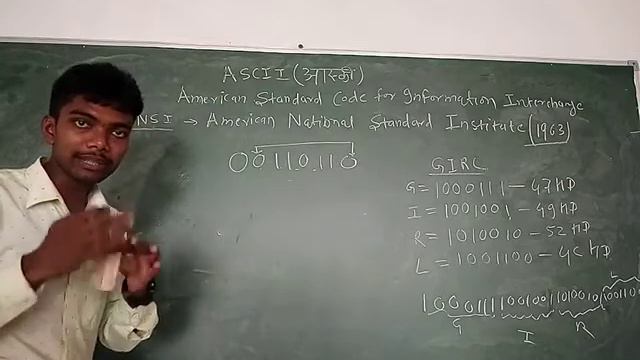 ASCII (आस्की)
American Standard Code for Information Interchange
NSI → American National Standard Institute (1963)
00110110
GIRL
G = 1000111 - 47 HD
I = 1001001 - 49 HD
R = 1010010 - 52 HD
L = 1001100 - 4C HD
L
1000111100100110100101001100
G I R